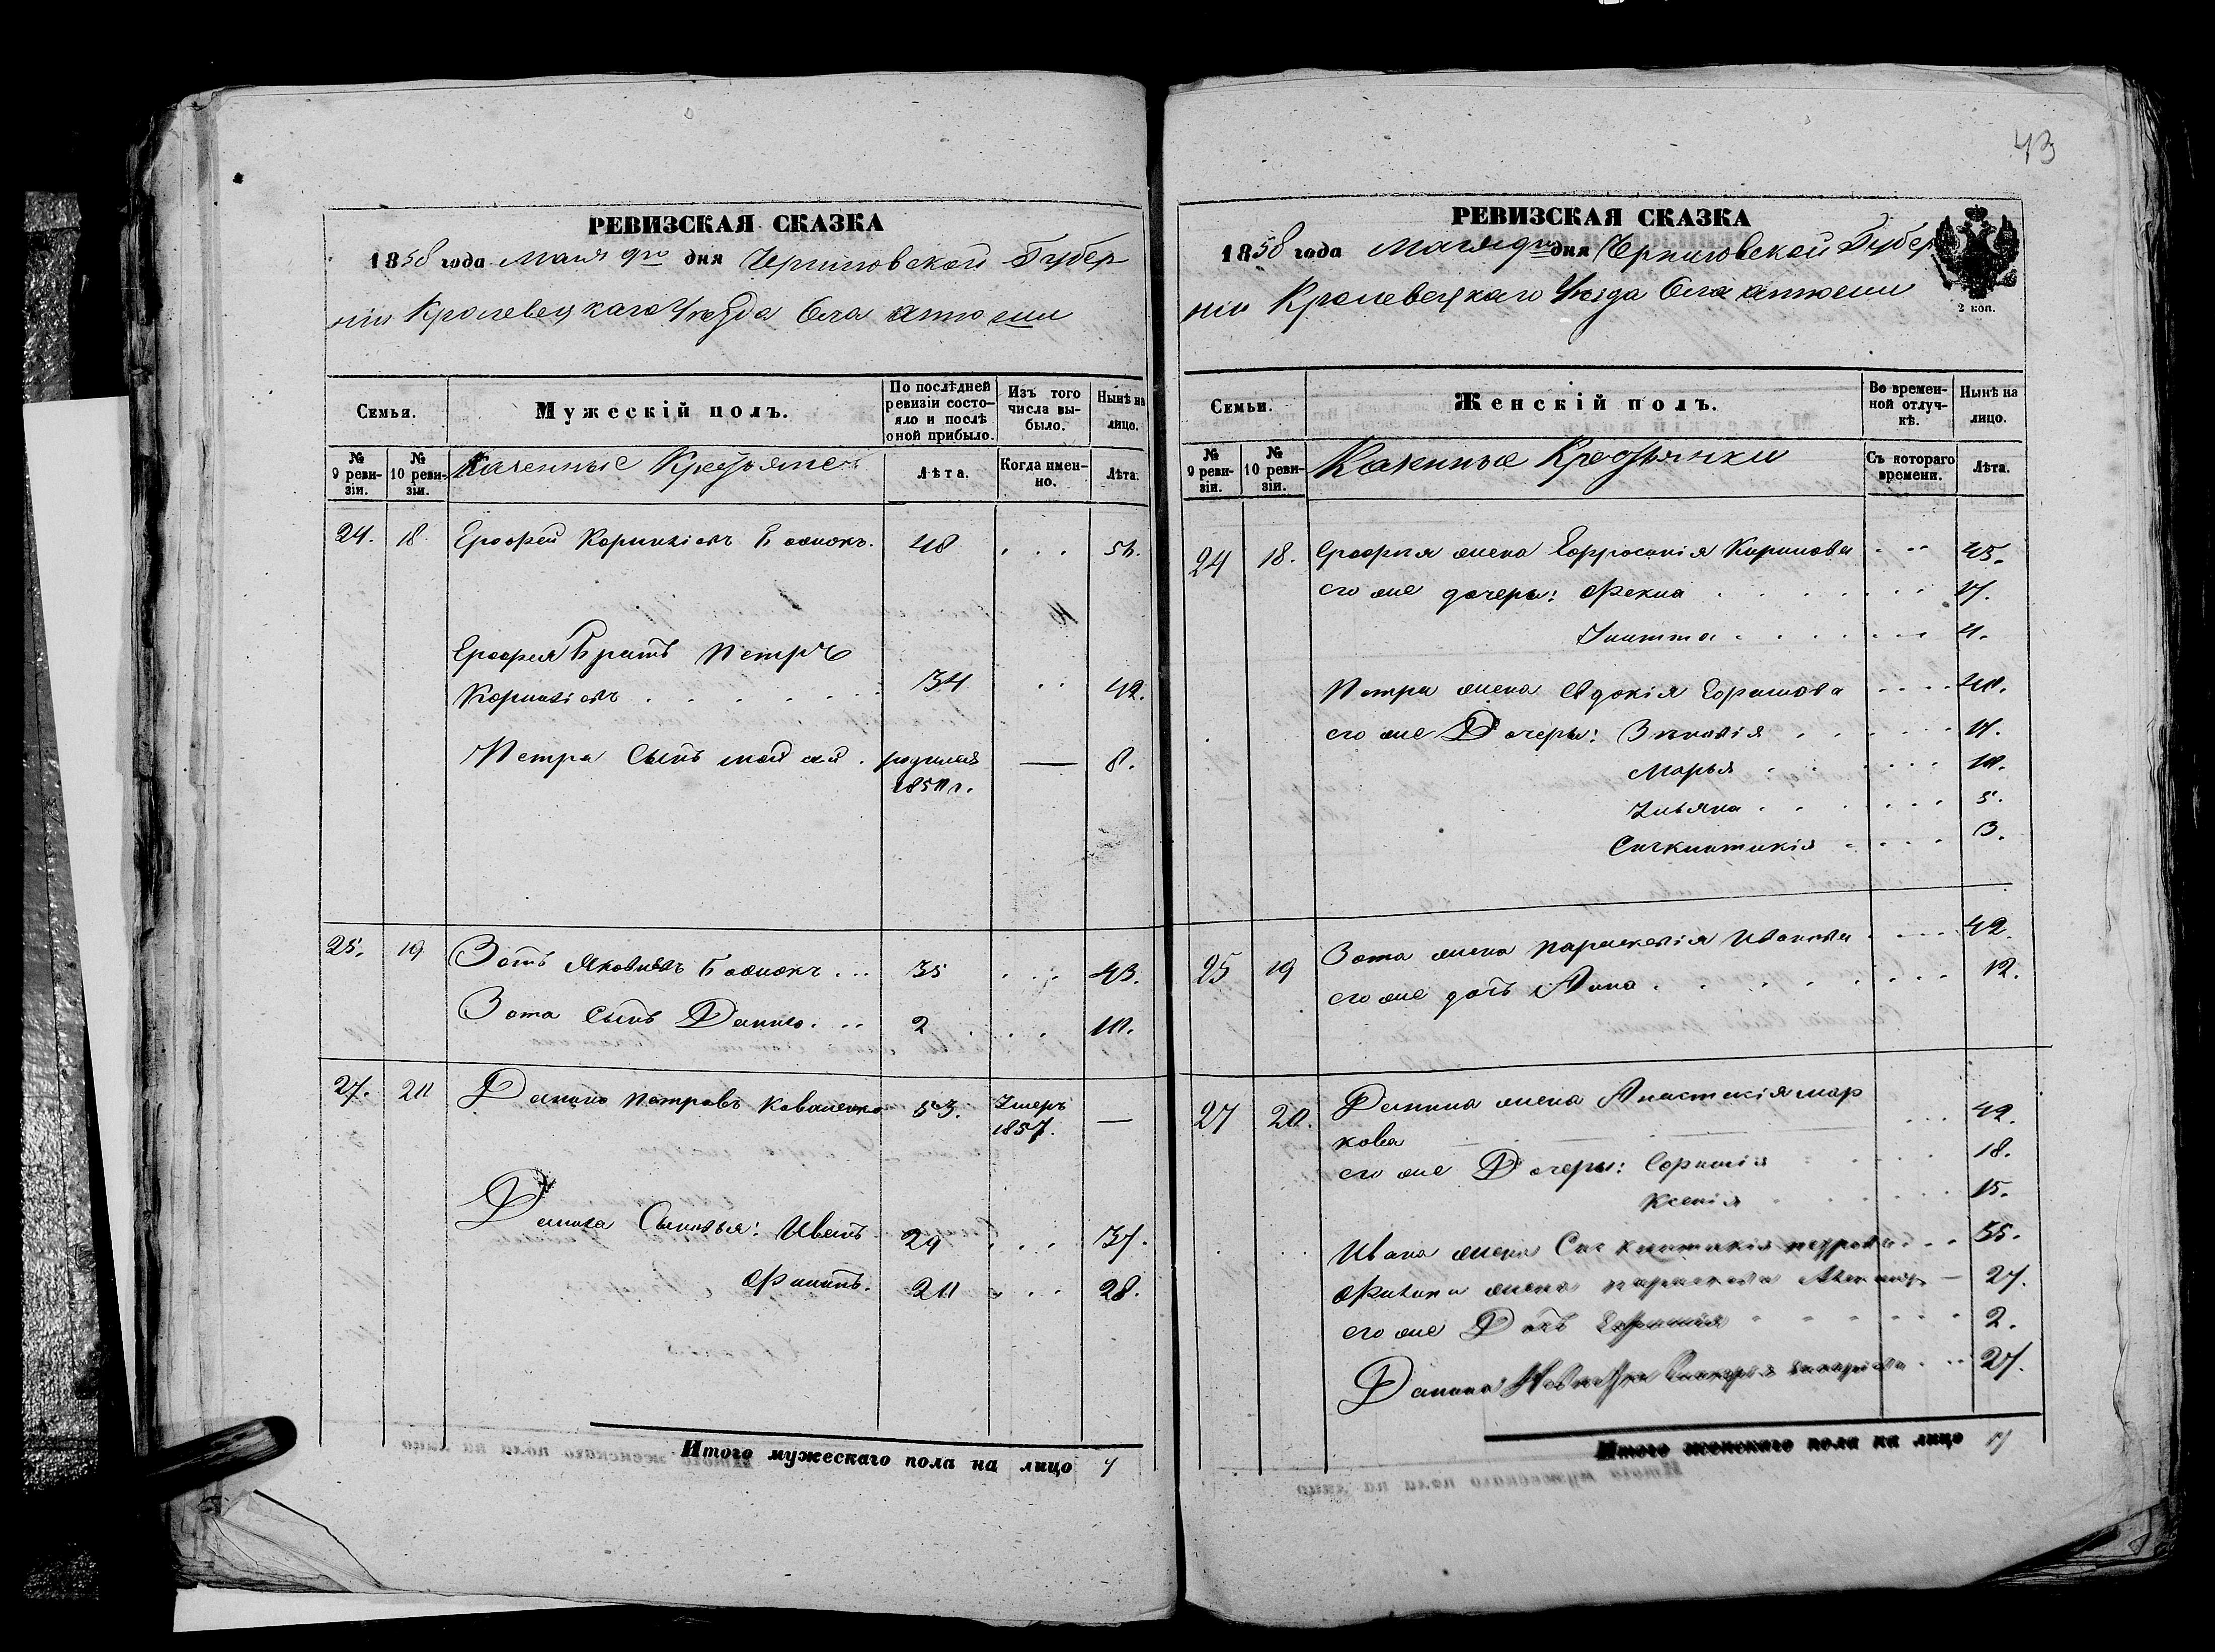 43
РЕВИЗСКАЯ СКАЗКА
1858 года Мая 9го дня Черниговской Губер
ніи Кролевецкаго Уѣзда Села
Семьи.
Мужескій полъ.
По послѣдней ревизіи состояло и послѣ оной прибыло.
Изъ того числа выбыло.
Нынѣ на лицо.
№ 9 ревизіи.
№ 10 ревизіи.
Казенные Крестьяне
Лѣта.
Когда именно.
Лѣта.
24. 18 Ерофей Корнилієвъ 48 . . . 56.
Ерофея Братъ Петръ
Корнилієвъ 34 . . 42.
Петра Сынъ родился — 8.
1850 г.
25. 19 Зотъ Яковлевъ 35 . . . 43.
Зота Сынъ Данило 2 . . . 10.
27. 20 Данило Петровъ Коваленко 53. Умеръ —
1857.
Данила Сыновья: Иванъ 29 . . . 37.
Филипъ. 20 . . . 28.
Итого мужескаго пола на лицо 7
РЕВИЗСКАЯ СКАЗКА
1858 года Мая 9го дня Черниговской Губер
ніи Кролевецкаго Уѣзда Села
2 коп.
Семьи.
Женскій полъ.
Во временной отлучкѣ.
Нынѣ на лицо.
№ 9 ревизіи.
№ 10 ревизіи.
Казенные Крестьянки
Съ котораго времени.
Лѣта.
24 18. Ерофея жена Ефросинія Кирилова 45.
его же дочери: Фекла 17.
Улита 11.
Петра жена Евдокія Ефимова 40.
его же Дочери: Зиновія 17.
Марья 10.
Ульяна 5.
Сигклитикія 3.
25 19 Зота жена Параскевія Иванова 42.
его же дочь Анна 12.
27 20. Данила жена Анастасія Мар
кова 49.
его же Дочери: Софія 18.
Ксенія 15.
Ивана жена Сигклитикія Петрова 35.
Филипа жена 27.
его же Дочь 2.
Данила Невестка 27.
Итого женскаго пола на лицо 17